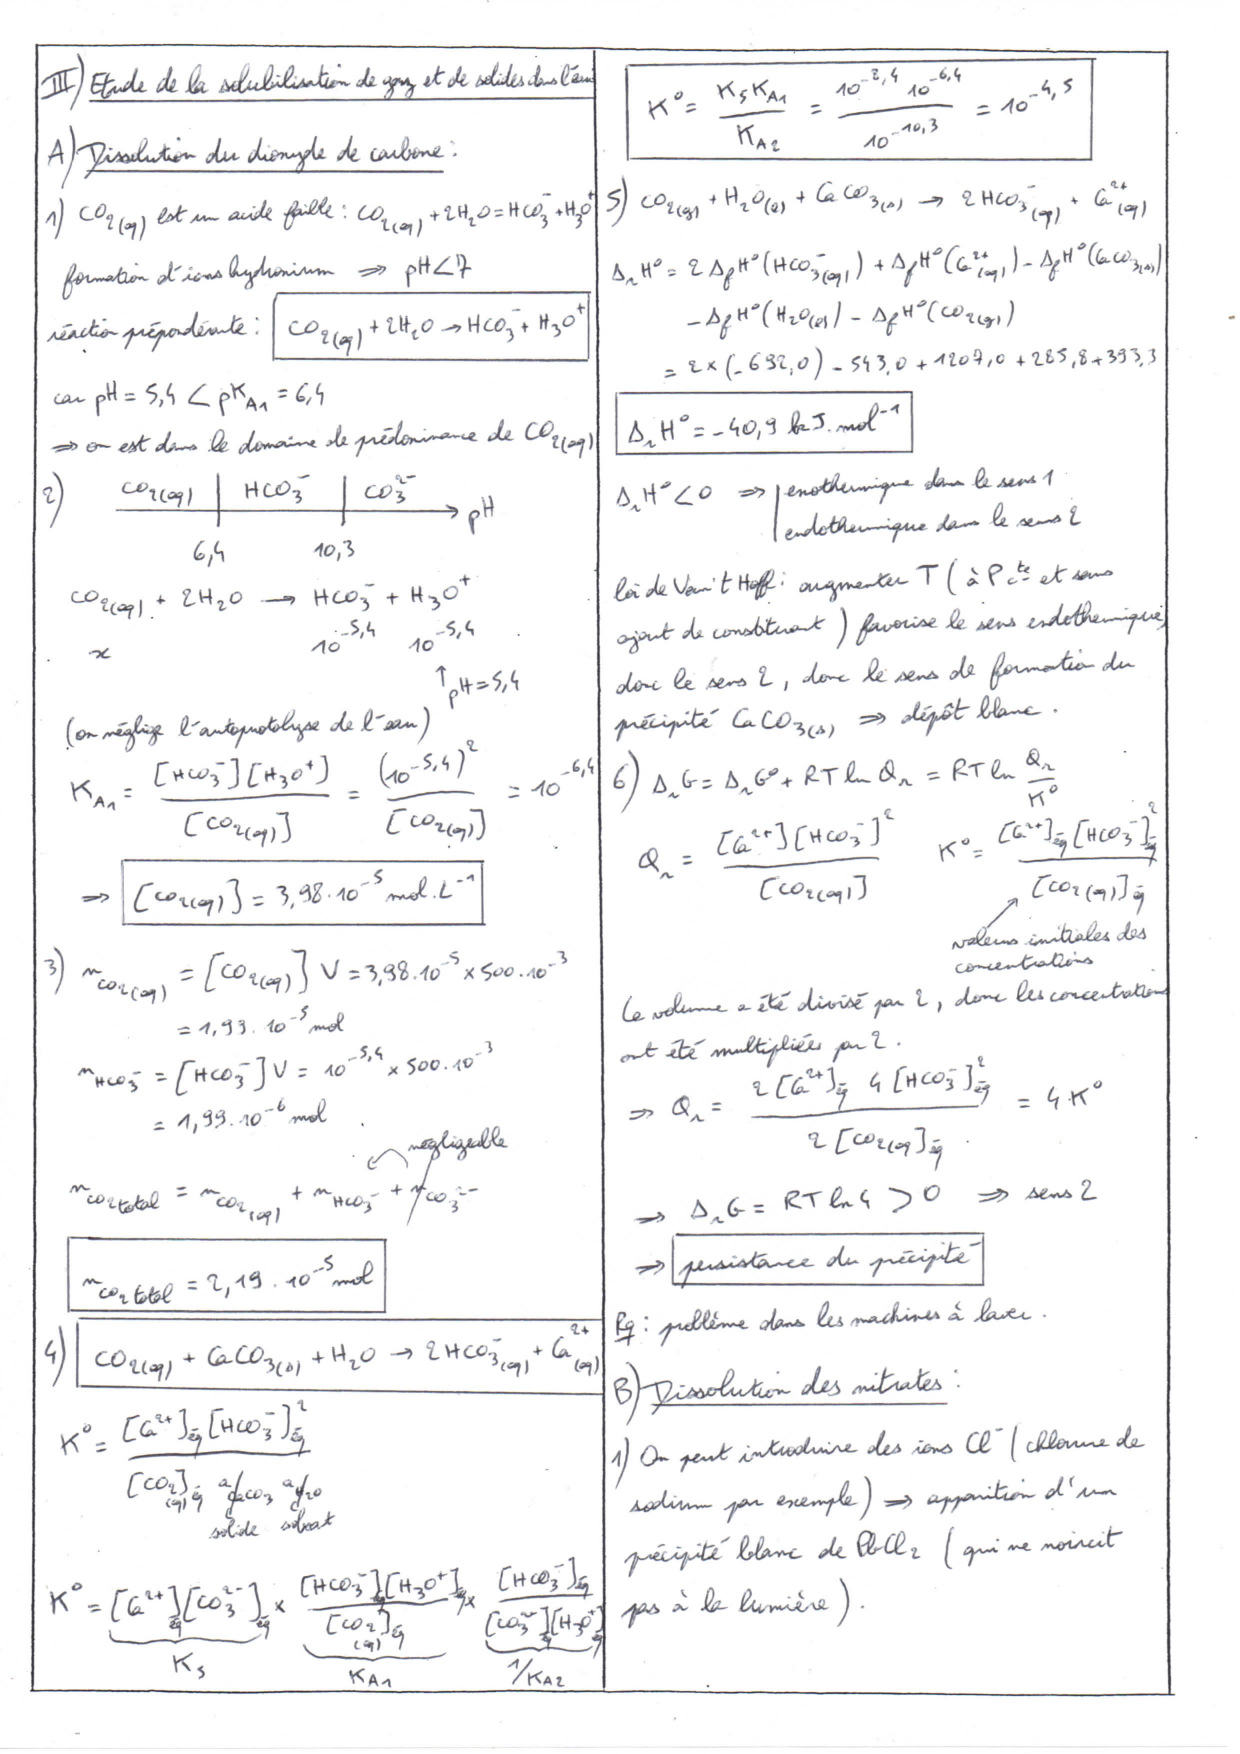 III) Etude de la solubilisation de gaz et de solides dans l'eau
A) Dissolution du dioxyde de carbone :
1) CO2(aq) est un acide faible : CO2(aq) + 2H2O = HCO3- + H3O+
formation d'ions hydronium ⇒ pH < 7
réaction prépondérante : CO2(aq) + 2H2O → HCO3- + H3O+
car pH = 5,4 < pKA1 = 6,4
⇒ on est dans le domaine de prédominance de CO2(aq)
2) CO2(aq) | HCO3- | CO3^2- → pH
6,4 10,3
CO2(aq) + 2H2O → HCO3- + H3O+
x 10^-5,4 10^-5,4
↑ pH = 5,4
(on néglige l'autoprotolyse de l'eau)
KA1 = [HCO3-][H3O+] / [CO2(aq)] = (10^-5,4)^2 / [CO2(aq)] = 10^-6,4
⇒ [CO2(aq)] = 3,98.10^-5 mol.L^-1
3) nCO2(aq) = [CO2(aq)] V = 3,98.10^-5 × 500.10^-3
= 1,93.10^-5 mol
nHCO3- = [HCO3-] V = 10^-5,4 × 500.10^-3
= 1,99.10^-6 mol
négligeable
nCO2 total = nCO2(aq) + nHCO3- + nCO3^2-
nCO2 total = 2,19.10^-5 mol
4) CO2(aq) + CaCO3(s) + H2O → 2HCO3-(aq) + Ca2+(aq)
K° = [Ca2+]éq [HCO3-]²éq / [CO2(aq)]éq aCaCO3 aH2O
solide solvat
K° = [Ca2+]éq [CO3^2-]éq × [HCO3-]éq [H3O+]éq / [CO2(aq)]éq × [HCO3-]éq / [CO3^2-]éq [H3O+]éq
Ks KA1 1/KA2
K° = Ks KA1 / KA2 = 10^-2,4 10^-6,4 / 10^-10,3 = 10^-4,5
5) CO2(g) + H2O(l) + CaCO3(s) → 2HCO3-(aq) + Ca2+(aq)
ΔrH° = 2 ΔfH°(HCO3-(aq)) + ΔfH°(Ca2+(aq)) - ΔfH°(CaCO3(s))
- ΔfH°(H2O(l)) - ΔfH°(CO2(g))
= 2 × (-692,0) - 543,0 + 1207,0 + 285,8 + 393,3
ΔrH° = -40,9 kJ.mol^-1
ΔrH° < 0 ⇒ | exothermique dans le sens 1
endothermique dans le sens 2
loi de Van't Hoff : augmenter T (à P cte et sans
ajout de constituant) favorise le sens endothermique,
donc le sens 2, donc le sens de formation du
précipité CaCO3(s) ⇒ dépôt blanc.
6) ΔrG = ΔrG° + RT ln Qr = RT ln Qr / K°
Qr = [Ca2+][HCO3-]² / [CO2(aq)] K° = [Ca2+]éq [HCO3-]²éq / [CO2(aq)]éq
valeurs initiales des
concentrations
Le volume a été divisé par 2, donc les concentrations
ont été multipliées par 2.
⇒ Qr = 2[Ca2+]éq 4[HCO3-]²éq / 2[CO2(aq)]éq = 4.K°
⇒ ΔrG = RT ln 4 > 0 ⇒ sens 2
⇒ persistance du précipité
Rq : problème dans les machines à laver.
B) Dissolution des nitrates :
1) On peut introduire des ions Cl- (chlorure de
sodium par exemple) ⇒ apparition d'un
précipité blanc de PbCl2 (qui ne noircit
pas à la lumière).